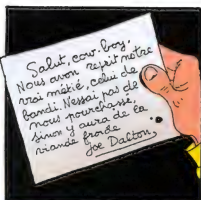 Salut, cow-boy,
Nous avon reprit notre
vrai métié, celui de
bandi. Nessai pas de
nous pourchassé,
sinon y aura de la
viande froide.
Joe Dalton.